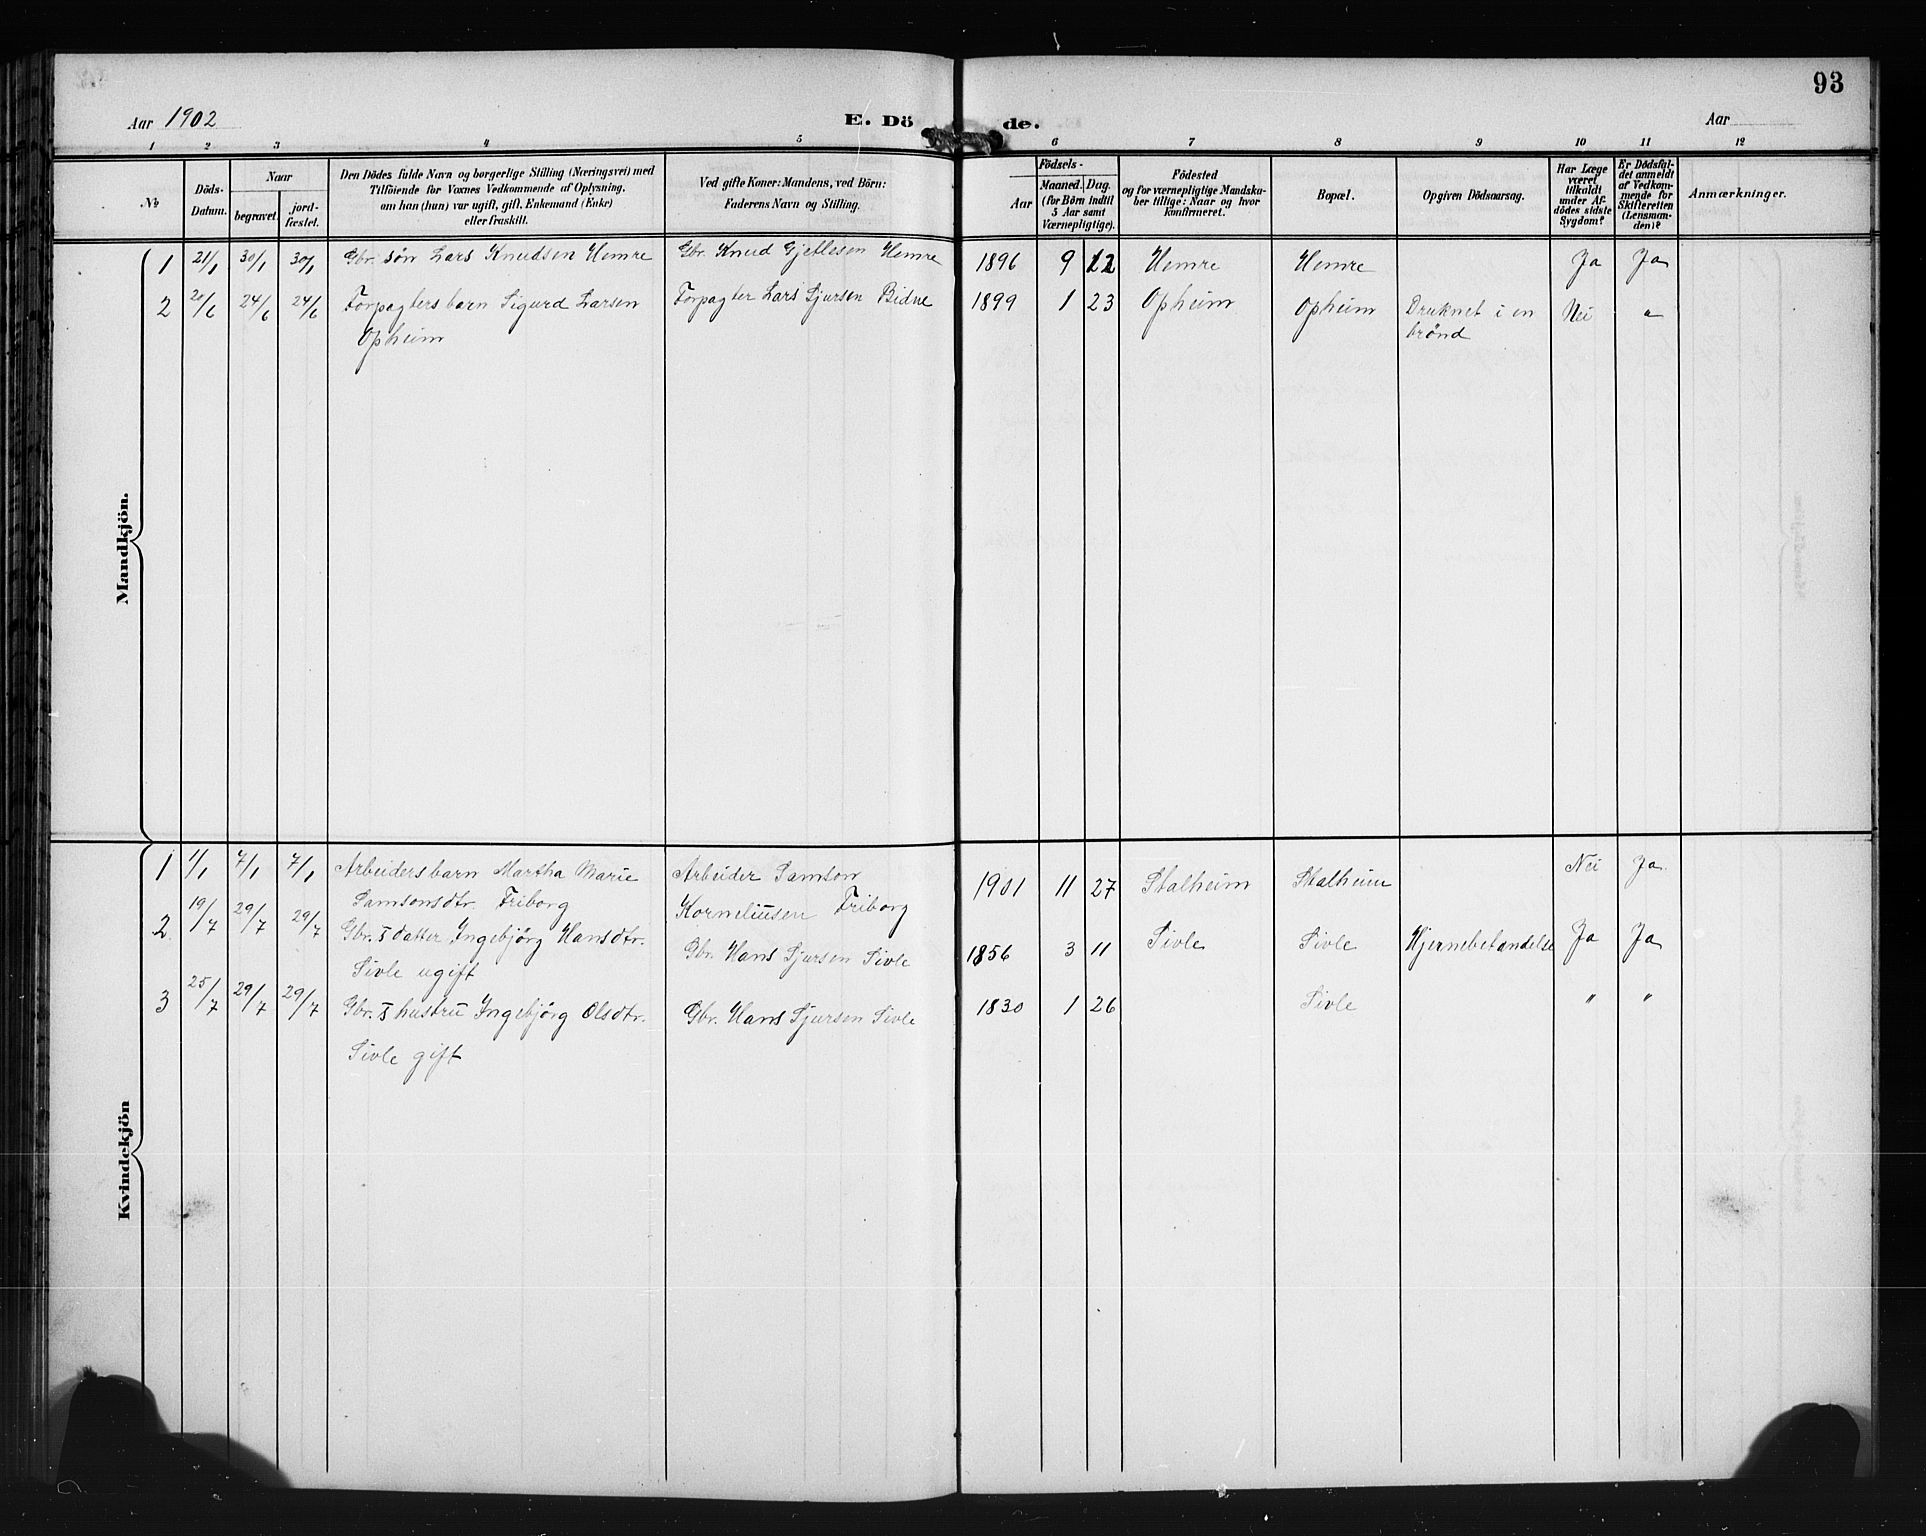 93
Aar 1902
E. Dö
de.
Aar
1 2 3 4 5 6 7 8 9 10 11 12
№
Döds-
Datum.
Naar
begravet.
jord-
fæstet.
Den Dödes fulde Navn og borgerlige Stilling (Næringsvei) med
Tilföiende for Voxnes Vedkommende af Oplysning.
om han (hun) var ugift, gift. Enkemand (Enke)
eller fraskilt.
Ved gifte Koner: Mandens, ved Börn:
Faderens Navn og Stilling.
Födsels-
Aar
Maaned. Dag.
(for Börn indtil
5 Aar samt
Værnepligtige).
Födested
og for værnepligtige Mandska-
ber tillige: Naar og hvor
konfirmeret.
Bopæl.
Opgiven Dödsaarsag.
Har Læge
været
tilkaldt
under Af-
dödes sidste
Sygdom?
Er Dödsfal-
det anmeldt
af Vedkom-
mende for
Skifteretten
(Lensman-
den)?
Anmærkninger.
Mandkjön.
1 21/1 30/1 30/1 Gbr. sön Lars Knudsen Hemre Gbr. Knud Gjetlesen Hemre 1896 9 12 Hemre Hemre Ja Ja
2 20/6 24/6 24/6 Forpagters barn Sigurd Larsen Forpagter Lars Sjursen Bidne 1899 1 23 Opheim Opheim Druknet i en Nei "
Opheim brønd
Kvindekjön
1 1/1 7/1 7/1 Arbeidersbarn Martha Marie Arbeider Samson 1901 11 27 Stalheim Stalheim Nei Ja
Samsonsdtr. Friborg Korneliusen Friborg
2 19/7 29/7 29/7 Gbr.s datter Ingebjörg Hansdtr. Gbr. Hans Sjursen Sivle 1856 3 11 Sivle Sivle Hjernebetændelse Ja Ja
Sivle ugift
3 25/7 29/7 29/7 Gbr.s hustru Ingebjörg Olsdtr. Gbr. Hans Sjursen Sivle 1830 1 26 Sivle " "
Sivle gift